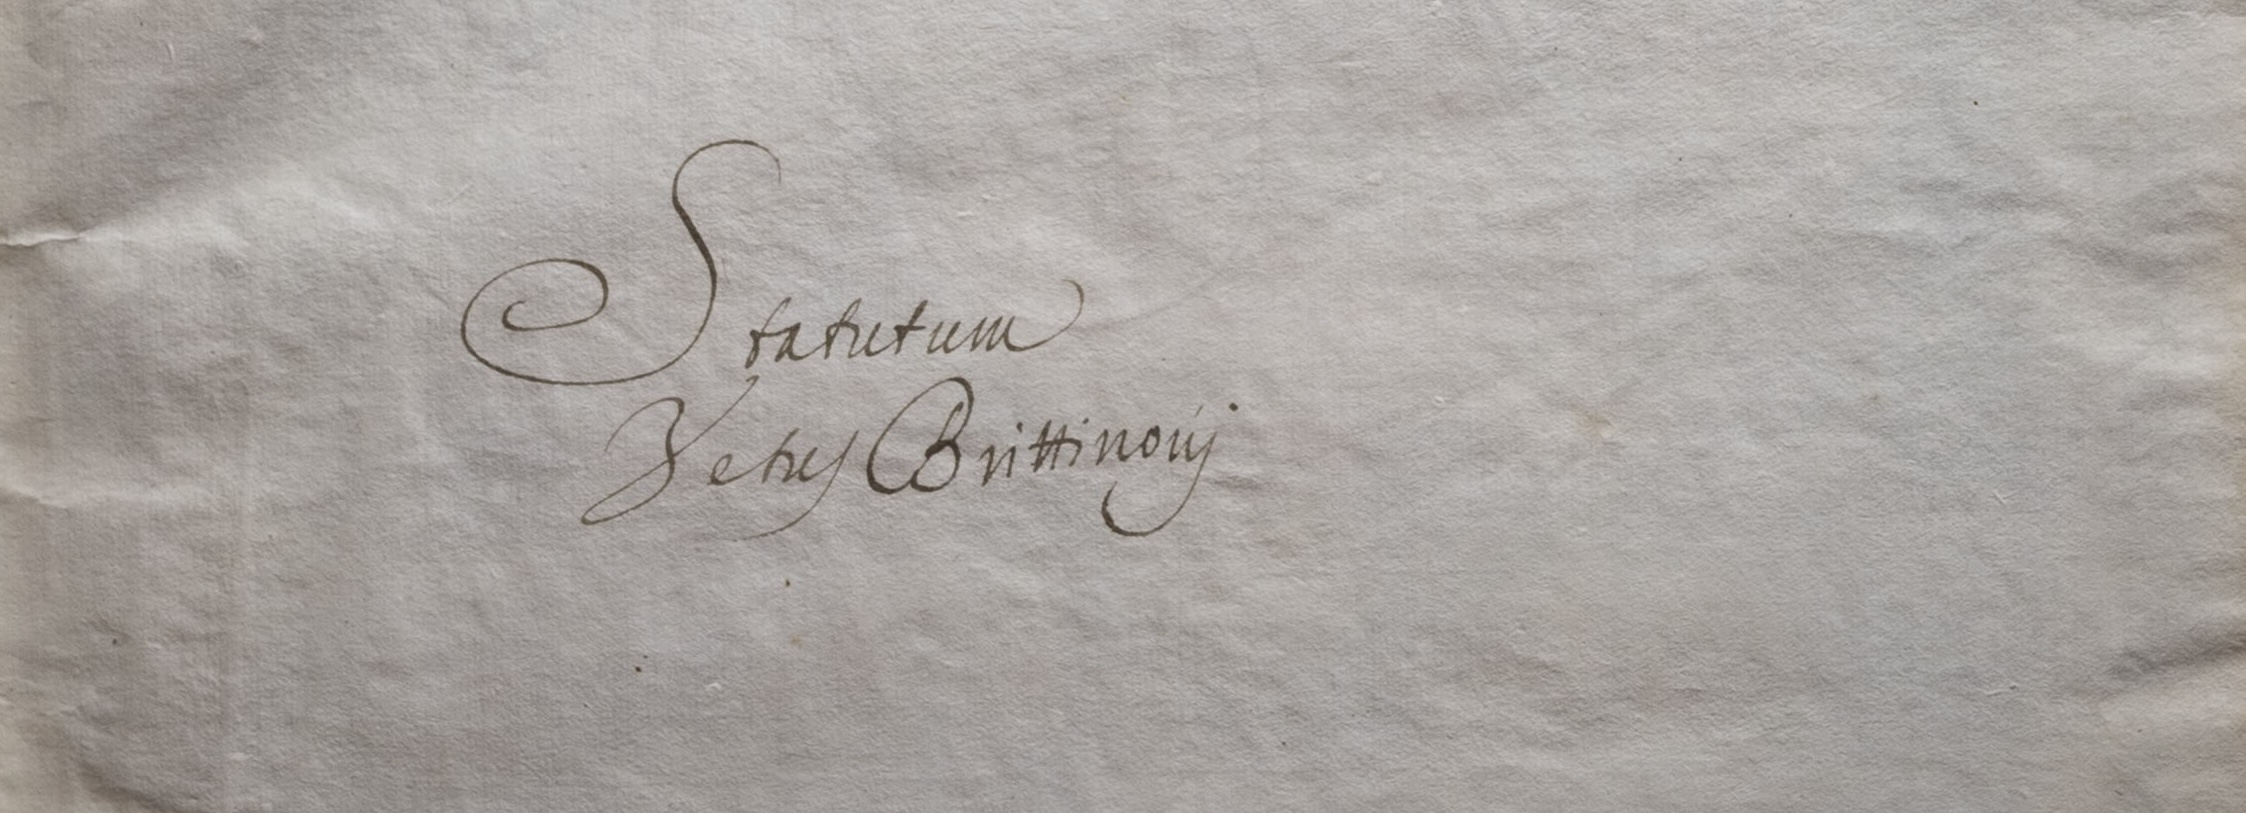 Statutum
Vetus Brittinorij